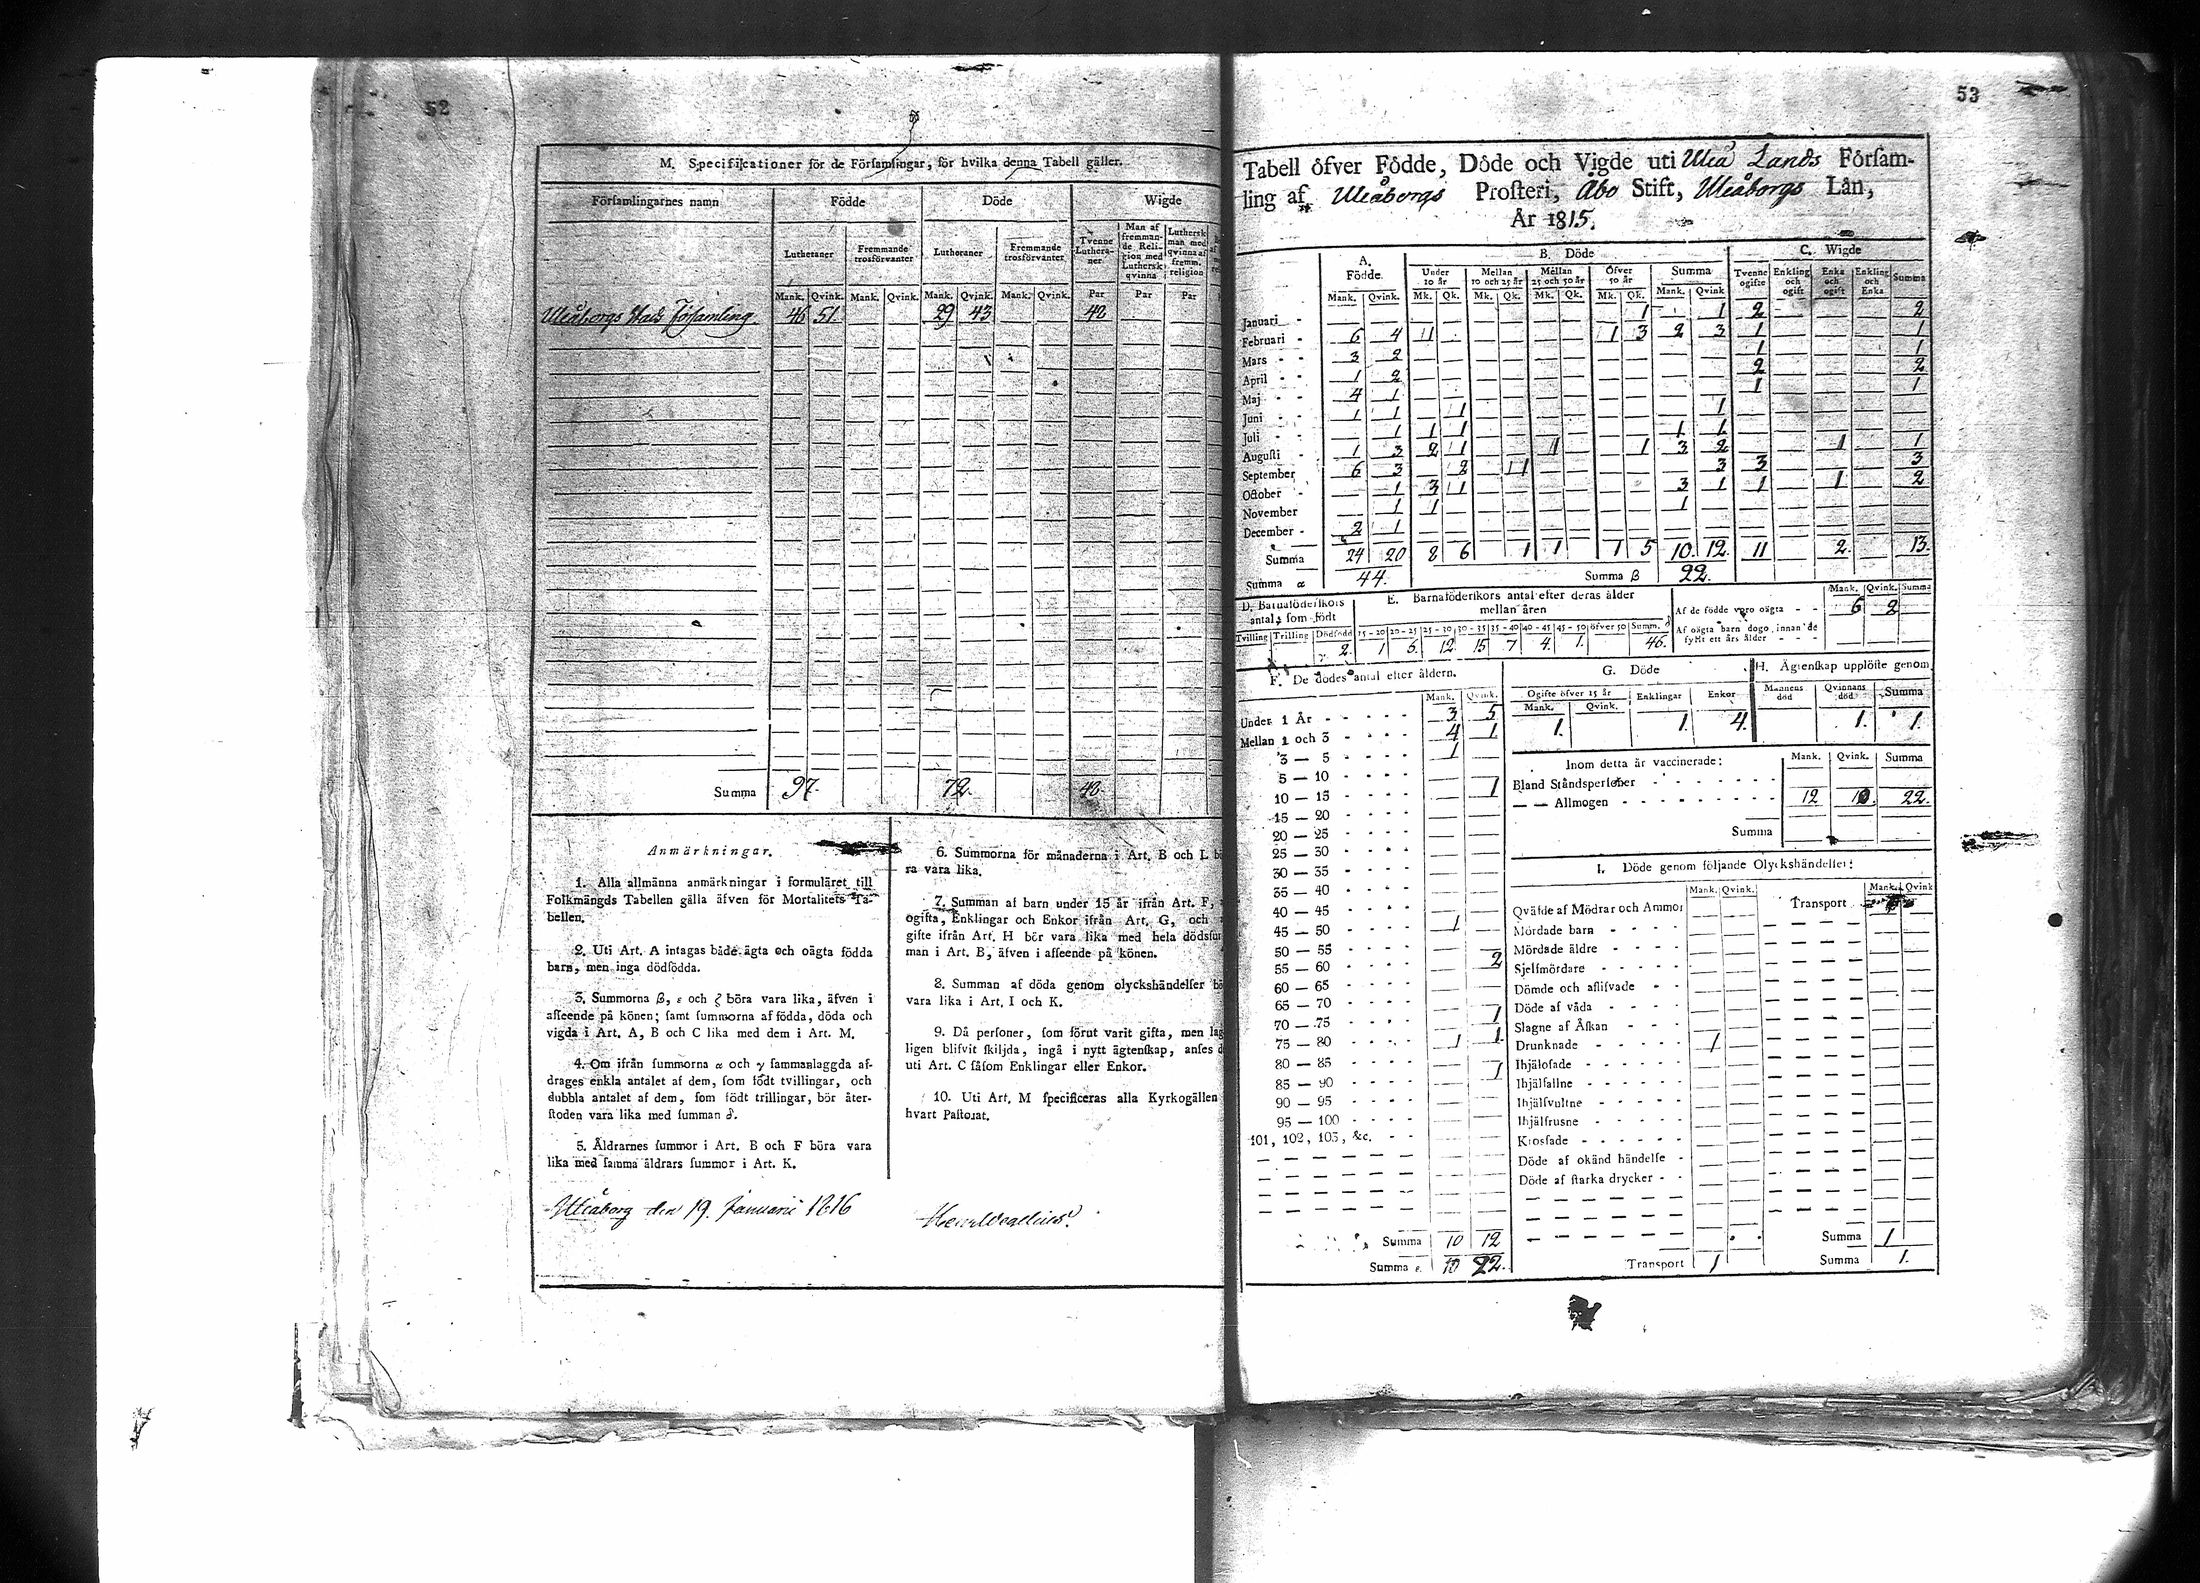 52
M. Specificationer för de Församlingar, för hvilka denna Tabell gäller.
Församlingarnes namn Födde Döde Wigde
Lutheraner Fremmande trosförvanter Lutheraner Fremmande trosförvanter Tvenne Lutheraner Man af fremmande Religion med Luthersk qvinna Luthersk man med qvinna af fremm. religion
Mank. Qvink. Mank. Qvink. Mank. Qvink. Mank. Qvink. Par Par Par
Uleåborgs Stads Församling. 46 51. 29 43 40
Summa 97. 72. 40.
Anmärkningar.
1. Alla allmänna anmärkningar i formuläret till
Folkmängds Tabellen gälla äfven för Mortalitets Ta-
bellen.
2. Uti Art. A intagas både ägta och oägta födda
barn, men inga dödfödda.
3. Summorna β, ε och ζ böra vara lika, äfven i
afseende på könen; samt summorna af födda, döda och
vigda i Art. A, B och C lika med dem i Art. M.
4. Om ifrån summorna α och γ sammanlaggda af-
drages enkla antalet af dem, som födt tvillingar, och
dubbla antalet af dem, som födt trillingar, bör åter-
stoden vara lika med summan δ.
5. Åldrarnes summor i Art. B och F böra vara
lika med samma åldrars summor i Art. K.
6. Summorna för månaderna i Art. B och L bö
ra vara lika.
7. Summan af barn under 15 år ifrån Art. F,
ogifta, Enklingar och Enkor ifrån Art. G, och
gifte ifrån Art. H bör vara lika med hela dödsfum
man i Art. B, äfven i afseende på könen.
8. Summan af döda genom olyckshändelser bö
vara lika i Art. I och K.
9. Då personer, som förut varit gifta, men lag
ligen blifvit skiljda, ingå i nytt ägtenskap, anses d
uti Art. C såsom Enklingar eller Enkor.
10. Uti Art. M specificeras alla Kyrkogällen
hvart Pastorat.
Uleåborg den 19. Januarii 1816
53
Tabell öfver Födde, Döde och Vigde uti Uleå Lands Försam-
ling af Uleåborgs Prosteri, Åbo Stift, Uleåborgs Län,
År 1815.
A. Födde. B. Döde C. Wigde
Under 10 år Mellan 10 och 25 år Mellan 25 och 50 år Öfver 50 år Summa Tvenne ogifte Enkling och ogift Enka och ogift Enkling och Enka Summa
Mank. Qvink. Mk. Qk. Mk. Qk. Mk. Qk. Mk. Qk. Mank. Qvink
Januari 1 1 2 2
Februari 6 4 1 1 3 2 3 1 1
Mars 3 2 1 1
April 1 2 2 2
Maj 4 1 1 1
Juni 1 1 1 1
Juli 1 1 1 1 1
Augusti 1 3 2 1 1 1 3 2 1 1
September 6 3 2 1 3 3 3
October 1 3 1 3 1 1 1 2
November 1 1 1
December 2 1
Summa 24 20 8 6 1 1 1 5 10. 12. 11 2. 13.
Summa α 44. Summa β 22.
D. Barnaföderskors antal, som födt
Tvilling Trilling Dödfödd
γ 2.
E. Barnaföderskors antal efter deras ålder mellan åren
15-20 20-25 25-30 30-35 35-40 40-45 45-50 öfver 50 Summ. δ
1 6. 12. 15 7 4. 1. 46.
Mank. Qvink. Summa
Af de födde voro oägta 6 2
Af oägta barn dogo innan de
fyllt ett års ålder
F. De dödes antal efter åldern.
Mank. Qvink.
Under 1 År 3 5
Mellan 1 och 3 4 1
3 — 5 1
5 — 10
10 — 15 1
15 — 20
20 — 25
25 — 30
30 — 35
35 — 40
40 — 45
45 — 50 1
50 — 55
55 — 60 2
60 — 65
65 — 70
70 — 75 1
75 — 80 1 1
80 — 85
85 — 90 1
90 — 95
95 — 100
101, 102, 103, &c.
Summa 10 12
Summa ε. 10 22.
G. Döde
Ogifte öfver 15 år Enklingar Enkor
Mank. Qvink.
1. 1. 4.
H. Ägtenskap upplöste genom
Mannens död Qvinnans död Summa
1. 1.
Inom detta år vaccinerade: Mank. Qvink. Summa
Bland Ståndspersoner
— — Allmogen 12 10. 22.
Summa
I. Döde genom följande Olyckshändelser:
Mank. Qvink.
Qväfde af Mödrar och Ammor
Mördade barn
Mördade äldre
Sjelfmördare
Dömde och aflifvade
Döde af våda
Slagne af Åskan
Drunknade 1
Ihjälosade
Ihjälfallne
Ihjälsvultne
Ihjälfrusne
Krossade
Döde af okänd händelse
Döde af starka drycker
Transport 1
Mank. Qvink
Transport
Summa 1
Summa 1.